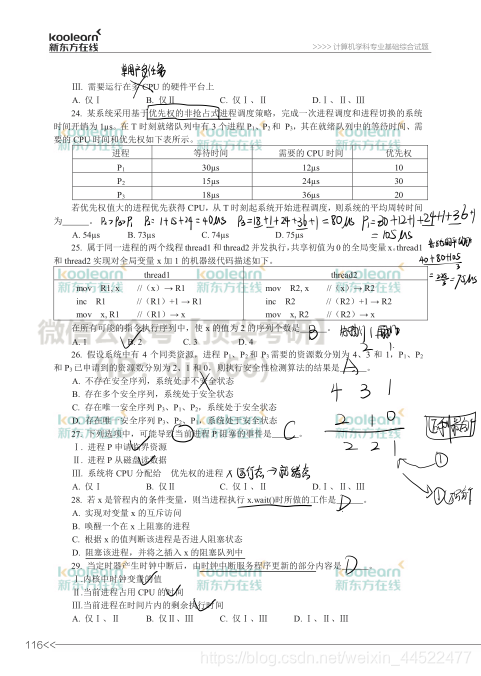 koolearn
新东方在线
>>>> 计算机学科专业基础综合试题
单用户多任务
III. 需要运行在多 CPU 的硬件平台上
A. 仅Ⅰ B. 仅Ⅱ C. 仅Ⅰ、Ⅱ D.Ⅰ、Ⅱ、III
24. 某系统采用基于优先权的非抢占式进程调度策略，完成一次进程调度和进程切换的系统
时间开销为 1μs。在 T 时刻就绪队列中有 3 个进程 P₁、P₂ 和 P₃，其在就绪队列中的等待时间、需
要的 CPU 时间和优先权如下表所示。
进程 等待时间 需要的 CPU 时间 优先权
P₁ 30μs 12μs 10
P₂ 15μs 24μs 30
P₃ 18μs 36μs 20
若优先权值大的进程优先获得 CPU，从 T 时刻起系统开始进程调度，则系统的平均周转时间
为 。 P₂>P₃>P₁ P₂=1+15+24=40μs P₃=18+1+24+36+1=80μs P₁=30+12+1+24+1+36+1
=105μs
A. 54μs B. 73μs C. 74μs D. 75μs
40+80+105
3
=75μs
25. 属于同一进程的两个线程 thread1 和 thread2 并发执行，共享初值为 0 的全局变量 x，thread1
和 thread2 实现对全局变量 x 加 1 的机器级代码描述如下。
thread1 thread2
mov R1, x //（x）→ R1 mov R2, x //（x）→ R2
inc R1 //（R1）+1 → R1 inc R2 //（R2）+1 → R2
mov x, R1 //（R1）→ x mov x, R2 //（R2）→ x
在所有可能的指令执行序列中，使 x 的值为 2 的序列个数是 B 。
A. 1 B. 2 C. 3 D. 4
26. 假设系统中有 4 个同类资源，进程 P₁、P₂ 和 P₃ 需要的资源数分别为 4、3 和 1，P₁、P₂
和 P₃ 已申请到的资源数分别为 2、1 和 0，则执行安全性检测算法的结果是 A 。
A. 不存在安全序列，系统处于不安全状态
B. 存在多个安全序列，系统处于安全状态
C. 存在唯一安全序列 P₃、P₁、P₂，系统处于安全状态
D. 存在唯一安全序列 P₃、P₂、P₁，系统处于安全状态
4 3 1
2 1 0
2 2 1
27. 下列选项中，可能导致当前进程 P 阻塞的事件是 C 。
Ⅰ. 进程 P 申请临界资源
Ⅱ. 进程 P 从磁盘读数据
III. 系统将 CPU 分配给 优先权的进程 X 运行态→就绪态
A. 仅Ⅰ B. 仅Ⅱ C. 仅Ⅰ、Ⅱ D.Ⅰ、Ⅱ、III
28. 若 x 是管程内的条件变量，则当进程执行 x.wait()时所做的工作是 D 。
A. 实现对变量 x 的互斥访问
B. 唤醒一个在 x 上阻塞的进程
C. 根据 x 的值判断该进程是否进人阻塞状态
D. 阻塞该进程，并将之插入 x 的阻塞队列中
29. 当定时器产生时钟中断后，由时钟中断服务程序更新的部分内容是 D 。
Ⅰ.内核中时钟变量的值
Ⅱ.当前进程占用 CPU 的时间
III.当前进程在时间片内的剩余执行时间
A. 仅Ⅰ、Ⅱ B. 仅Ⅱ、III C. 仅Ⅰ、III D. Ⅰ、Ⅱ、III
116<<
https://blog.csdn.net/weixin_44522477